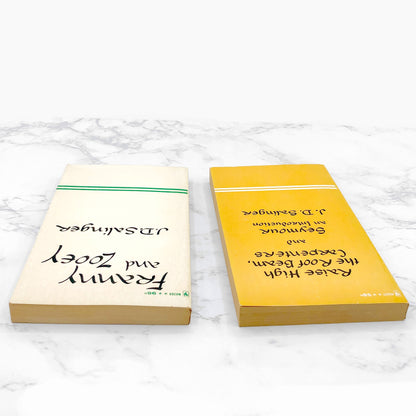 FRANNY
and Zooey
J.D. Salinger
Raise High
the Roof Beam,
Carpenters
and
Seymour
an Introduction
J. D. Salinger